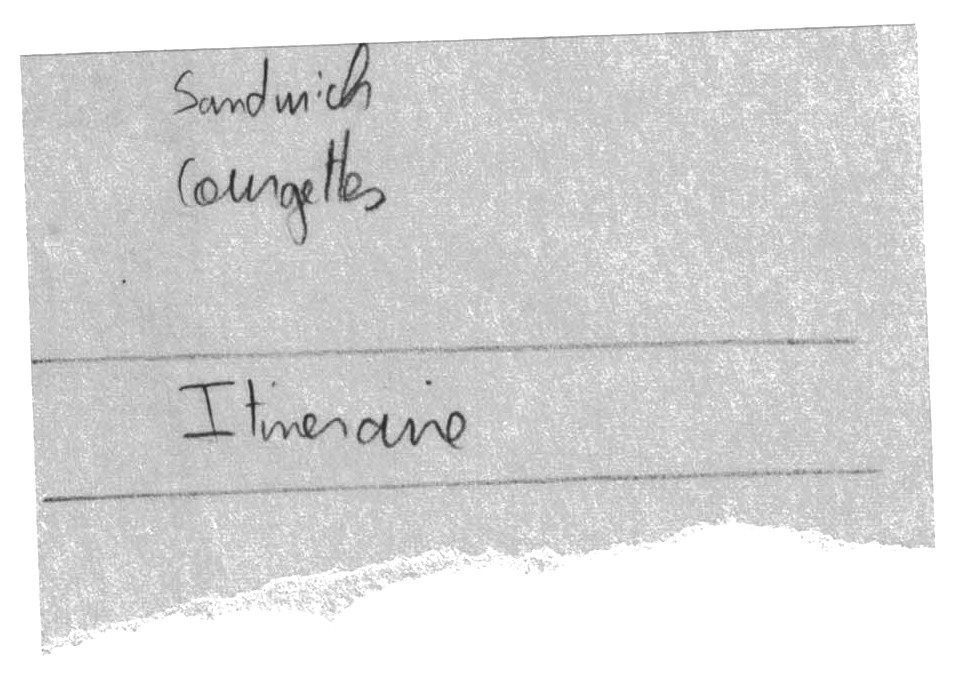 Sandwich
Courgettes
Itineraire